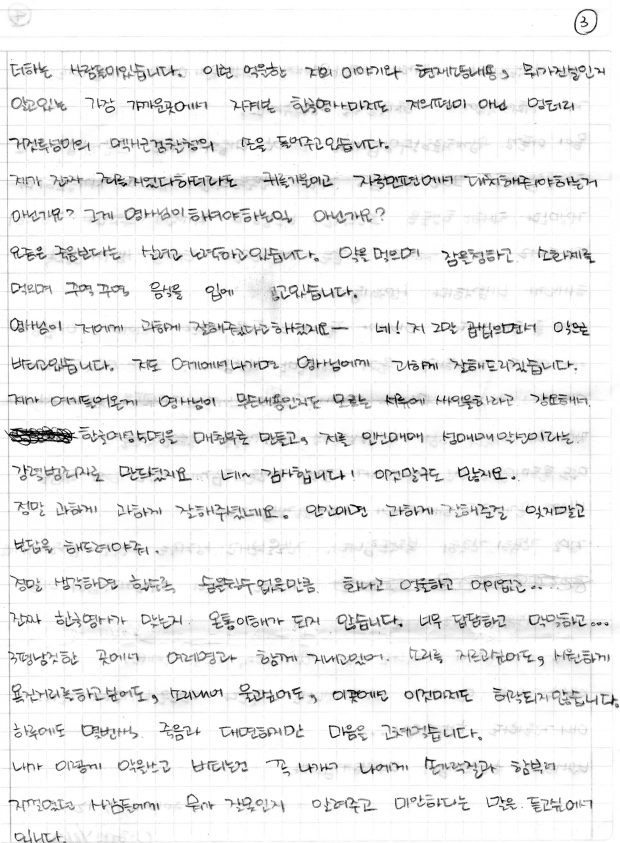 ③
더하는 사람들이있습니다. 이런 억울한 저의 이야기와 현재 내용, 뭐가진실인지
알고있는 가장 가까운곳에서 지켜본 한국영사마저도 저의편이 아닌 엉터리
거짓투성이의 멕시코검찰청의 손을 들어주고있습니다.
제가 진짜 죄를지었다하더라도 귀를기울이고 자국민편에서 대처해줘야하는거
아닌가요? 그게 영사님이해야하는일 아닌가요?
요즘은 죽음보다는 살려고 노력하고있습니다. 약을먹으며 잠을청하고 소화제를
먹으며 꾸역꾸역 음식을 입에 넣고있습니다.
영사님이 저에게 과하게 잘해줬다고하셨지요— 네! 저 그말 곱씹으면서 악으로
버티고있습니다. 저도 여기에서나가면 영사님에게 과하게 잘해드리겠습니다.
제가 여기들어온게 영사님이 무슨내용인지도 모르는 서류에 싸인을하라고 강요해서
한국여성5명을 매춘부로 만들고, 저를 인신매매 성매매 악년이라는
강력범죄자로 만드셨지요 네~ 감사합니다! 이것말구도 많지요.
정말 과하게 과하게 잘해주셨네요. 인간이면 과하게 잘해준걸 잊지말고
보답을 해드려야줘.
정말 생각하면 할수록 숨을쉴수없을만큼 화나고 억울하고 어이없고..
진짜 한국영사가 맞는지 온통이해가 되지 않습니다. 너무 답답하고 막막하고...
3평남짓한 곳에서 여러명과 함께 지내고있어. 소리를 지르고싶어도, 시원하게
욕지거리를하고싶어도, 소리내어 울고싶어도, 이곳에선 이것마저도 허락되지않습니다
하루에도 몇번씩 죽음과 대면하지만 마음을 고쳐먹습니다.
내가 이렇게 악을쓰고 버티는건 꼭 나가서 나에게 손가락질과 함부러
지껄였던 사람들에게 뭐가 진실인지 알려주고 미안하다는 말은 듣고싶어서
입니다.